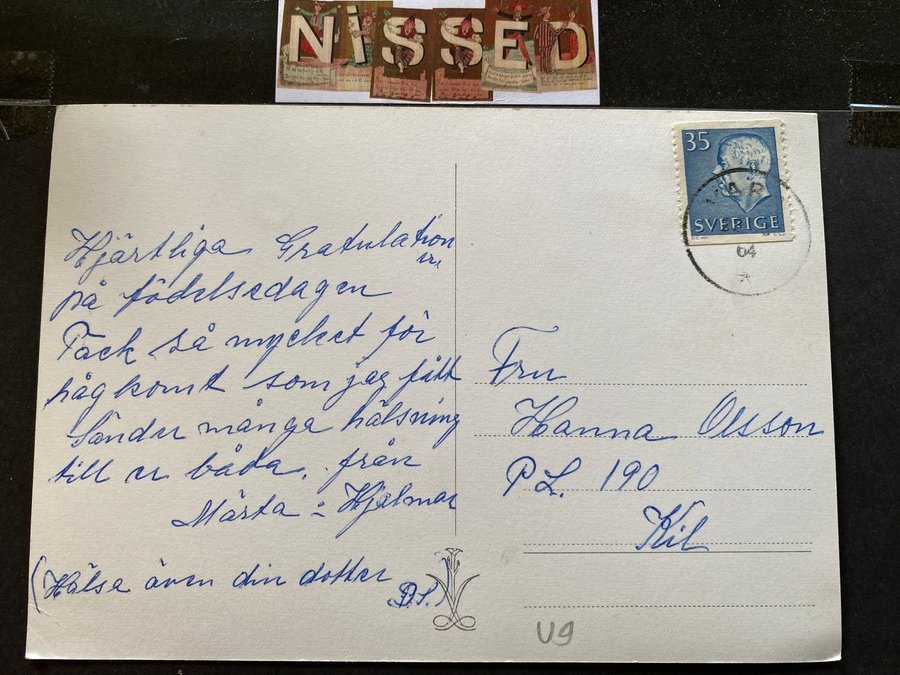 NISSED
35
SVERIGE
VAR
64
Hjärtliga Gratulation
er
på födelsedagen
Tack så mycket för
hågkomt som jag fått
Sänder många hälsning
till er båda, från
Märta : Hjalmar
(Hälsa även din dotter
D.S.)
Fru
Hanna Olsson
P L. 190
Kil
U9